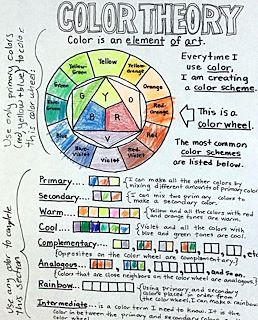 COLOR THEORY
Color is an element of art.
Use only primary colors
(red, yellow + blue) to color
this color wheel:
Yellow-
Green
Yellow
Yellow-
Orange
Green
Orange
Blue-
Green
Red-
Orange
Blue
Red
Blue-
Violet
Violet
Red-
Violet
G
Y
O
B
R
V
Everytime I
use color,
I am creating
a color scheme.
This is a
color wheel.
The most common
color schemes
are listed below.
Use any color to complete
this section
Primary....
I can make all the other colors by
mixing different amounts of primary color
Secondary....
I can mix two primary colors to
make a secondary color.
Warm....
Yellow and all the colors with red
and orange tones are warm.
Cool....
Violet and all the colors with
blue and green tones are cool.
Complementary....
Opposites on the color wheel are complementary.
Analogous....
and so on.
Colors that are close neighbors on the color wheel are analogous.
Rainbow....
Using primary and secondary
colors placed in order from
the color wheel, I can make a rainbow
Intermediate... is a color term I need to know. It is the
color in between the primary and secondary colors